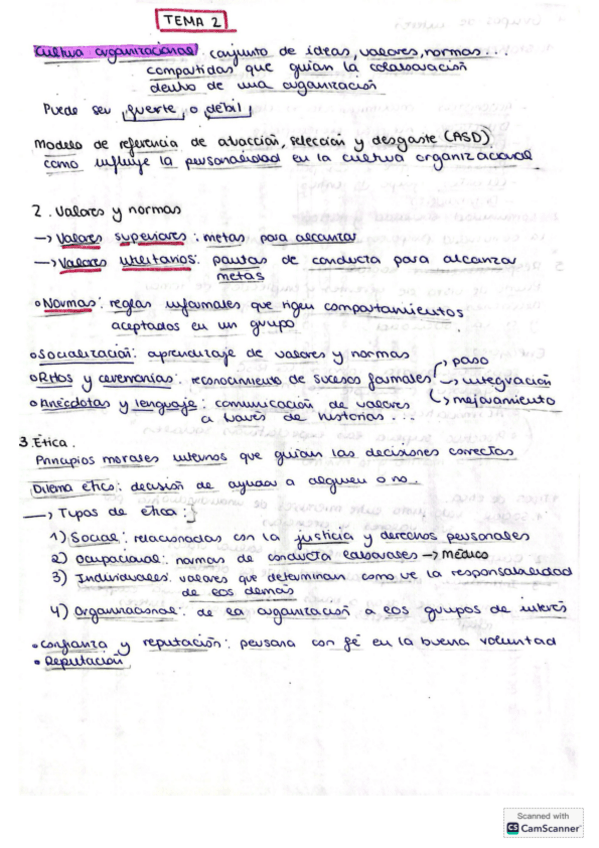 TEMA 2
Cultura organizacional: conjunto de ideas, valores, normas...
compartidas que guian la colaboración
dentro de una organización
Puede ser fuerte, o débil
Modelo de referencia de atracción, selección y desgaste (ASD)
como influye la personalidad en la cultura organizacional
2. Valores y normas
→ Valores superiores: metas para alcanzar
→ Valores utilitarios: pautas de conducta para alcanzar
metas
• Normas: reglas informales que rigen comportamientos
aceptados en un grupo
• Socialización: aprendizaje de valores y normas
• Ritos y ceremonias: reconocimiento de sucesos formales → paso
→ integración
→ mejoramiento
• Anécdotas y lenguaje: comunicación de valores
a través de historias...
3. Ética.
Principios morales internos que guian las decisiones correctas
Dilema ético: decisión de ayudar a alguien o no.
→ Tipos de ética:
1) Social: relacionadas con la justicia y derechos personales
2) Ocupacional: normas de conducta laborales → médico
3) Individuales: valores que determinan como ve la responsabilidad
de los demás
4) Organizacional: de la organización a los grupos de interés
• Confianza y reputación: persona con fé en la buena voluntad
• Reputación
Scanned with
CS CamScanner